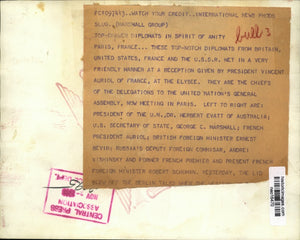 FCR097843..WATCH YOUR CREDIT..INTERNATIONAL NEWS PHOTOS
SLUG..(MARSHALL GROUP)
bull 3
TOP-DRAWER DIPLOMATS IN SPIRIT OF AMITY
PARIS, FRANCE...THESE TOP-NOTCH DIPLOMATS FROM BRITAIN,
UNITED STATES, FRANCE AND THE U.S.S.R. MET IN A VERY
FRIENDLY MANNER AT A RECEPTION GIVEN BY PRESIDENT VINCENT
AURIOL OF FRANCE, AT THE ELYSEE. THEY ARE THE CHIEFS
OF THE DELEGATIONS TO THE UNITED NATION'S GENERAL
ASSEMBLY, NOW MEETING IN PARIS. LEFT TO RIGHT ARE:
PRESIDENT OF THE U.N., DR. HERBERT EVATT OF AUSTRALIA;
U.S. SECRETARY OF STATE, GEORGE C. MARSHALL; FRENCH
PRESIDENT AURIOL; BRITISH FOREIGN MINISTER ERNEST
BEVIN; RUSSIA'S DEPUTY FOREIGN COMMISAR, ANDREI
VISHINSKY AND FORMER FRENCH PREMIER AND PRESENT FRENCH
FOREIGN MINISTER ROBERT SCHUMAN. YESTERDAY, THE
CENTRAL PRESS
ASSOCIATION